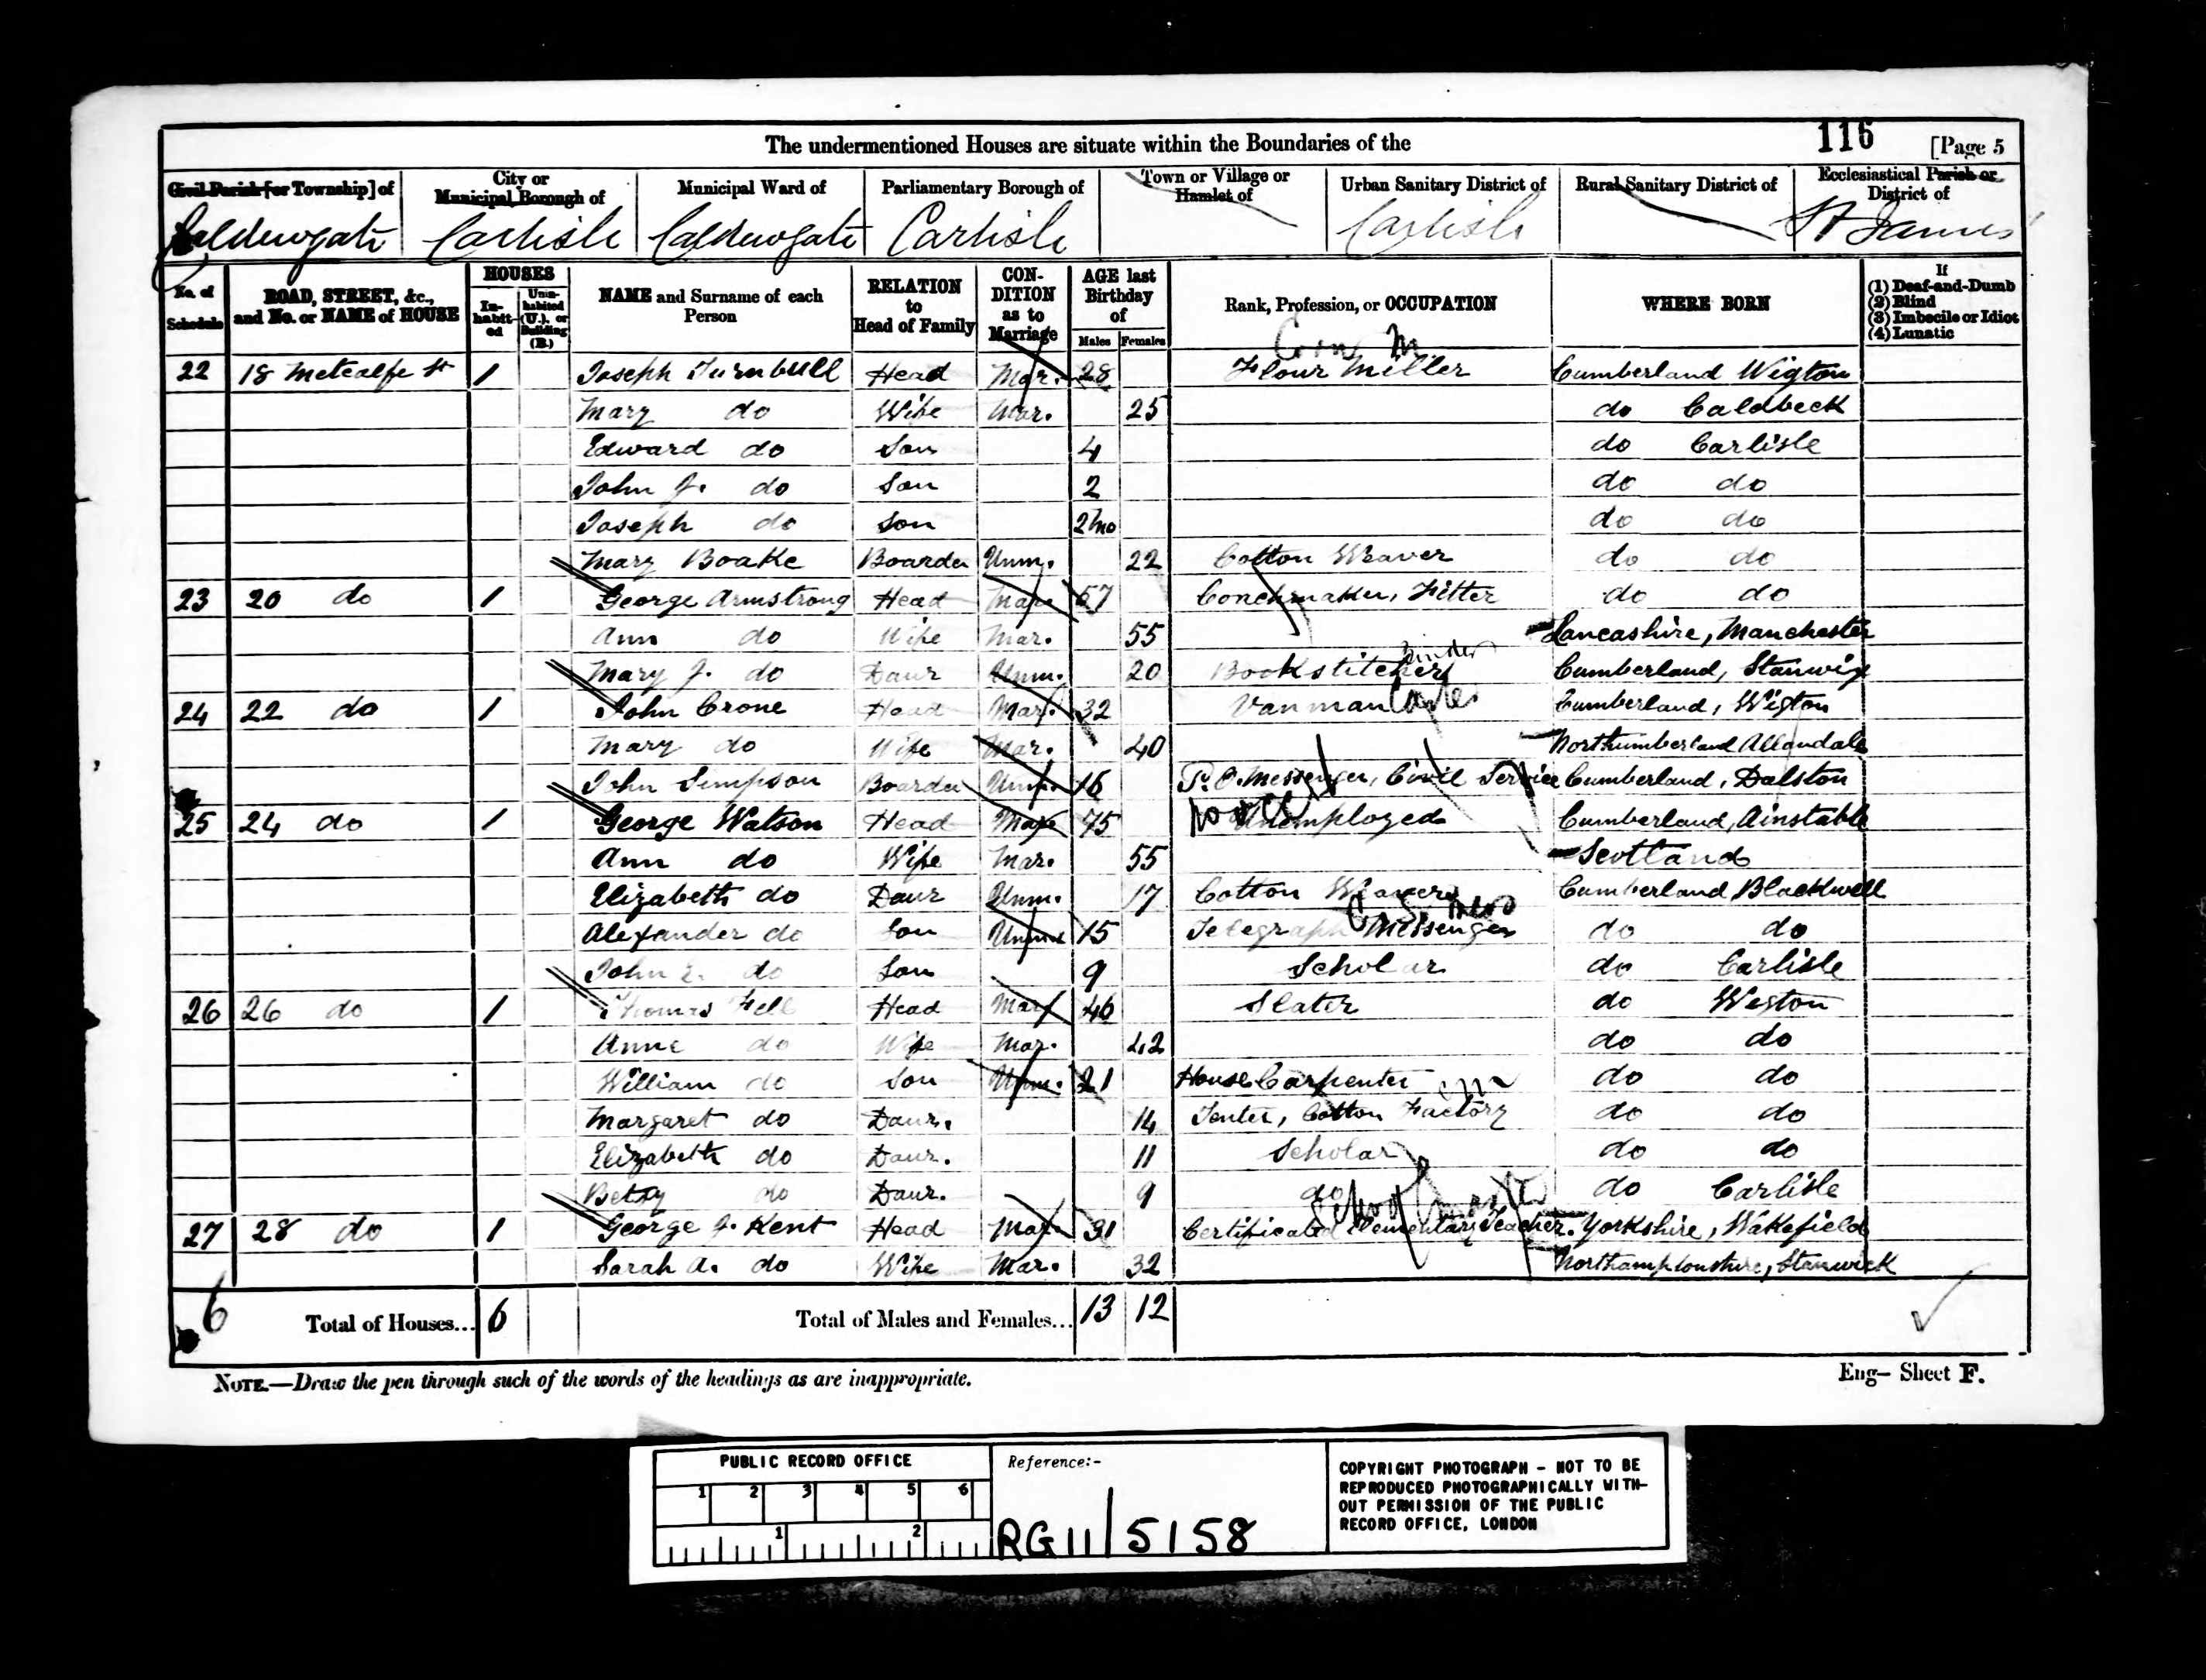 The undermentioned Houses are situate within the Boundaries of the 116 [Page 5
Civil Parish [or Township] of City or Municipal Borough of Municipal Ward of Parliamentary Borough of Town or Village or Hamlet of Urban Sanitary District of Rural Sanitary District of Ecclesiastical Parish or District of
Caldewgate Carlisle Caldewgate Carlisle Carlisle St James
No. of Schedule ROAD, STREET, &c., and No. or NAME of HOUSE HOUSES Inhabited Uninhabited (U.), or Building (B.) NAME and Surname of each Person RELATION to Head of Family CONDITION as to Marriage AGE last Birthday of Males Females Rank, Profession, or OCCUPATION WHERE BORN If (1) Deaf-and-Dumb (2) Blind (3) Imbecile or Idiot (4) Lunatic
Corn M
22 18 Metcalfe St 1 Joseph Turnbull Head Mar. 28 Flour Miller Cumberland Wigton
Mary do Wife Mar. 25 do Caldbeck
Edward do Son 4 do Carlisle
John J. do Son 2 do do
Joseph do Son 2mo do do
Mary Boake Boarder Unm. 22 Cotton Weaver do do
23 20 do 1 George Armstrong Head Mar. 57 Conchmaker, Fitter do do
Ann do Wife Mar. 55 Lancashire, Manchester
Binder
Mary J. do Daur Unm. 20 Book stitcher Cumberland, Stanwix
24 22 do 1 John Crone Head Mar. 32 Vanman Cumberland, Wigton
Mary do Wife Mar. 40 Northumberland Allandale
John Simpson Boarder Unm. 16 P. O. Messenger, Civil Service Cumberland, Dalston
25 24 do 1 George Watson Head Mar 75 Unemployed Cumberland, Ainstable
Ann do Wife Mar. 55 Scotland
Elizabeth do Daur Unm. 17 Cotton Weaver Cumberland Blackwell
Alexander do Son Unm 15 Telegraph Messenger do do
John E. do Son 9 Scholar do Carlisle
26 26 do 1 Thomas Fell Head Mar 46 Slater do Wigton
Anne do Wife Mar. 42 do do
William do Son Unm. 21 House Carpenter do do
Margaret do Daur. 14 Tenter, Cotton Factory do do
Elizabeth do Daur. 11 Scholar do do
Betsy do Daur. 9 do do Carlisle
Schoolmaster
27 28 do 1 George J. Kent Head Mar. 31 Certificated Elementary Teacher. Yorkshire, Wakefield
Sarah A. do Wife Mar. 32 Northamptonshire, Stanwick
6 Total of Houses... 6 Total of Males and Females... 13 12
NOTE.—Draw the pen through such of the words of the headings as are inappropriate. Eng— Sheet F.
PUBLIC RECORD OFFICE
1 2 3 4 5 6
1 2
Reference:-
RG11/5158
COPYRIGHT PHOTOGRAPH - NOT TO BE
REPRODUCED PHOTOGRAPHICALLY WITH-
OUT PERMISSION OF THE PUBLIC
RECORD OFFICE, LONDON